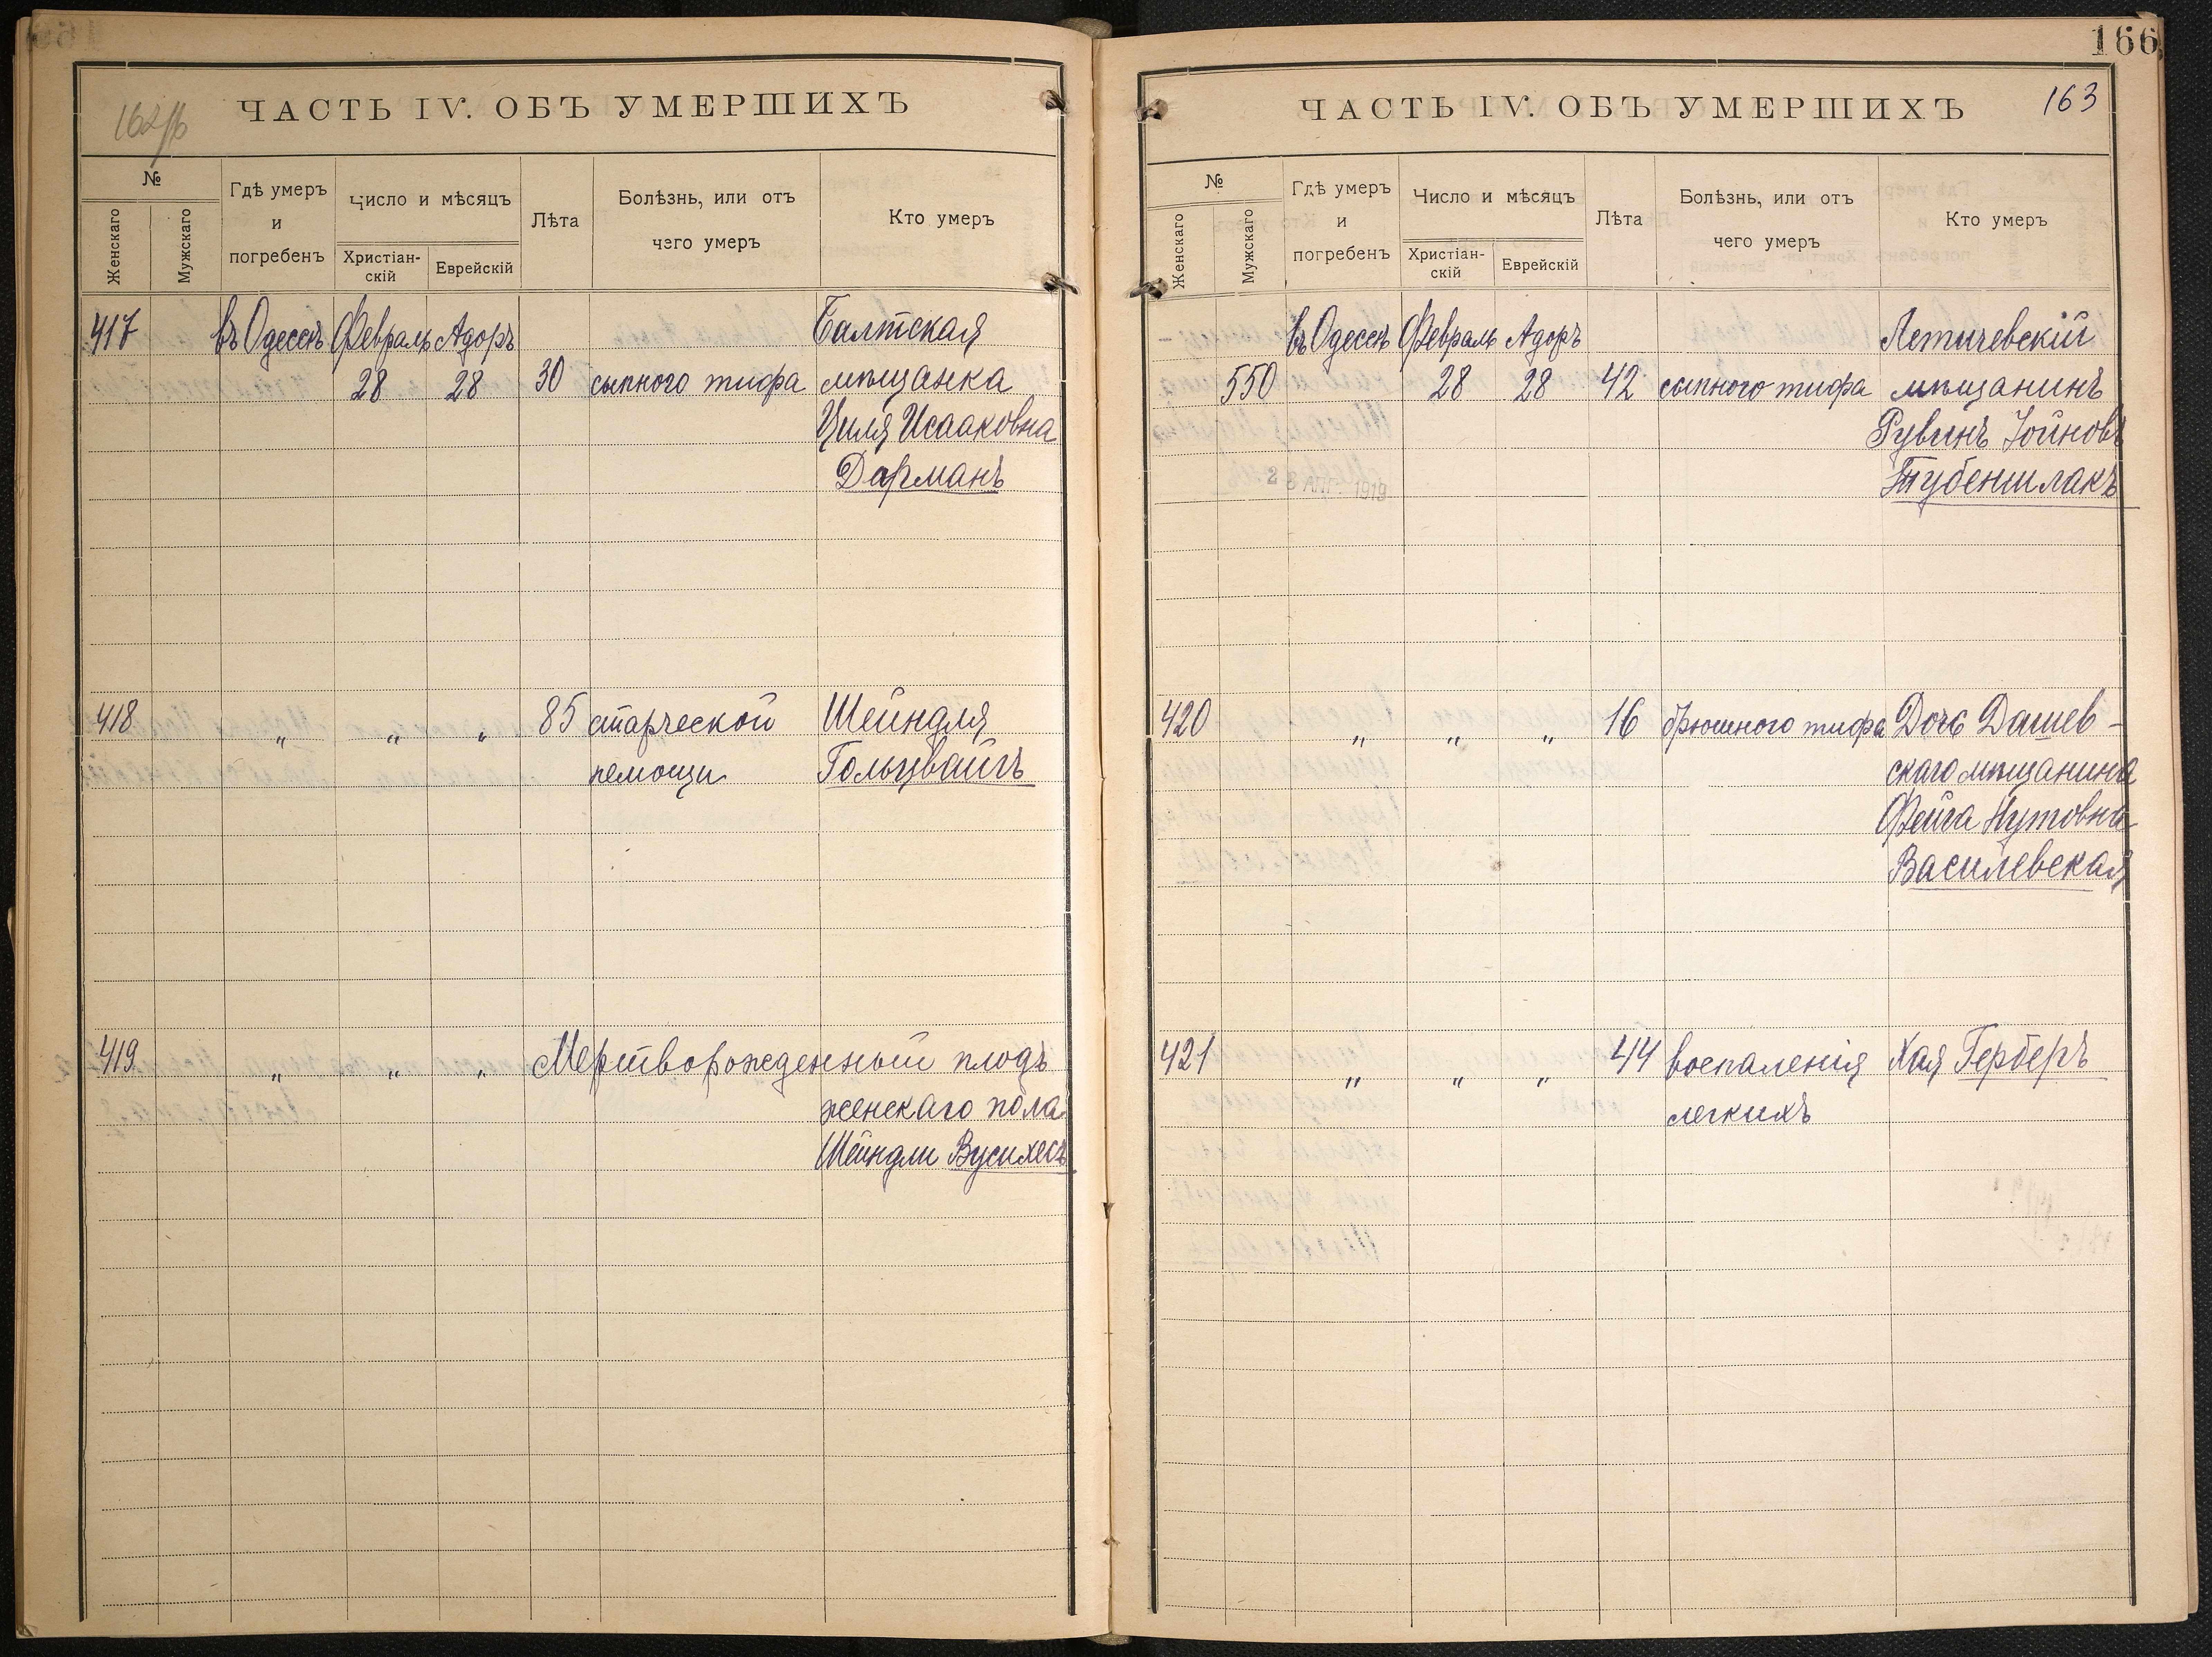 162об
ЧАСТЬ IV. ОБЪ УМЕРШИХЪ
№
Женскаго
Мужскаго
Гдѣ умеръ
и
погребенъ
Число и мѣсяцъ
Христіан-
скій
Еврейскій
Лѣта
Болѣзнь, или отъ
чего умеръ
Кто умеръ
417 въ Одессѣ Февраль Адоръ Балтская
28 28 30 сыпного тифа мѣщанка
Циля Исааковна
Дарманъ
418 „ „ „ 85 старческой Шейндля
немощи Гольцвайгъ
419 „ „ „ Мертворожденный плодъ
женскаго пола
Шейндли Вусихесъ
166
163
ЧАСТЬ IV. ОБЪ УМЕРШИХЪ
№
Женскаго
Мужскаго
Гдѣ умеръ
и
погребенъ
Число и мѣсяцъ
Христіан-
скій
Еврейскій
Лѣта
Болѣзнь, или отъ
чего умеръ
Кто умеръ
въ Одессѣ Февраль Адоръ Летичевскій
550 28 28 42 сыпного тифа мѣщанинъ
Рувинъ Іойновъ
Тубеншлакъ
1919
420 „ „ „ 16 брюшного тифа Дочь Дашев-
скаго мѣщанина
Фейга Нутовна
Василевская
421 „ „ „ 44 воспаленія Хая Герберъ
легкихъ